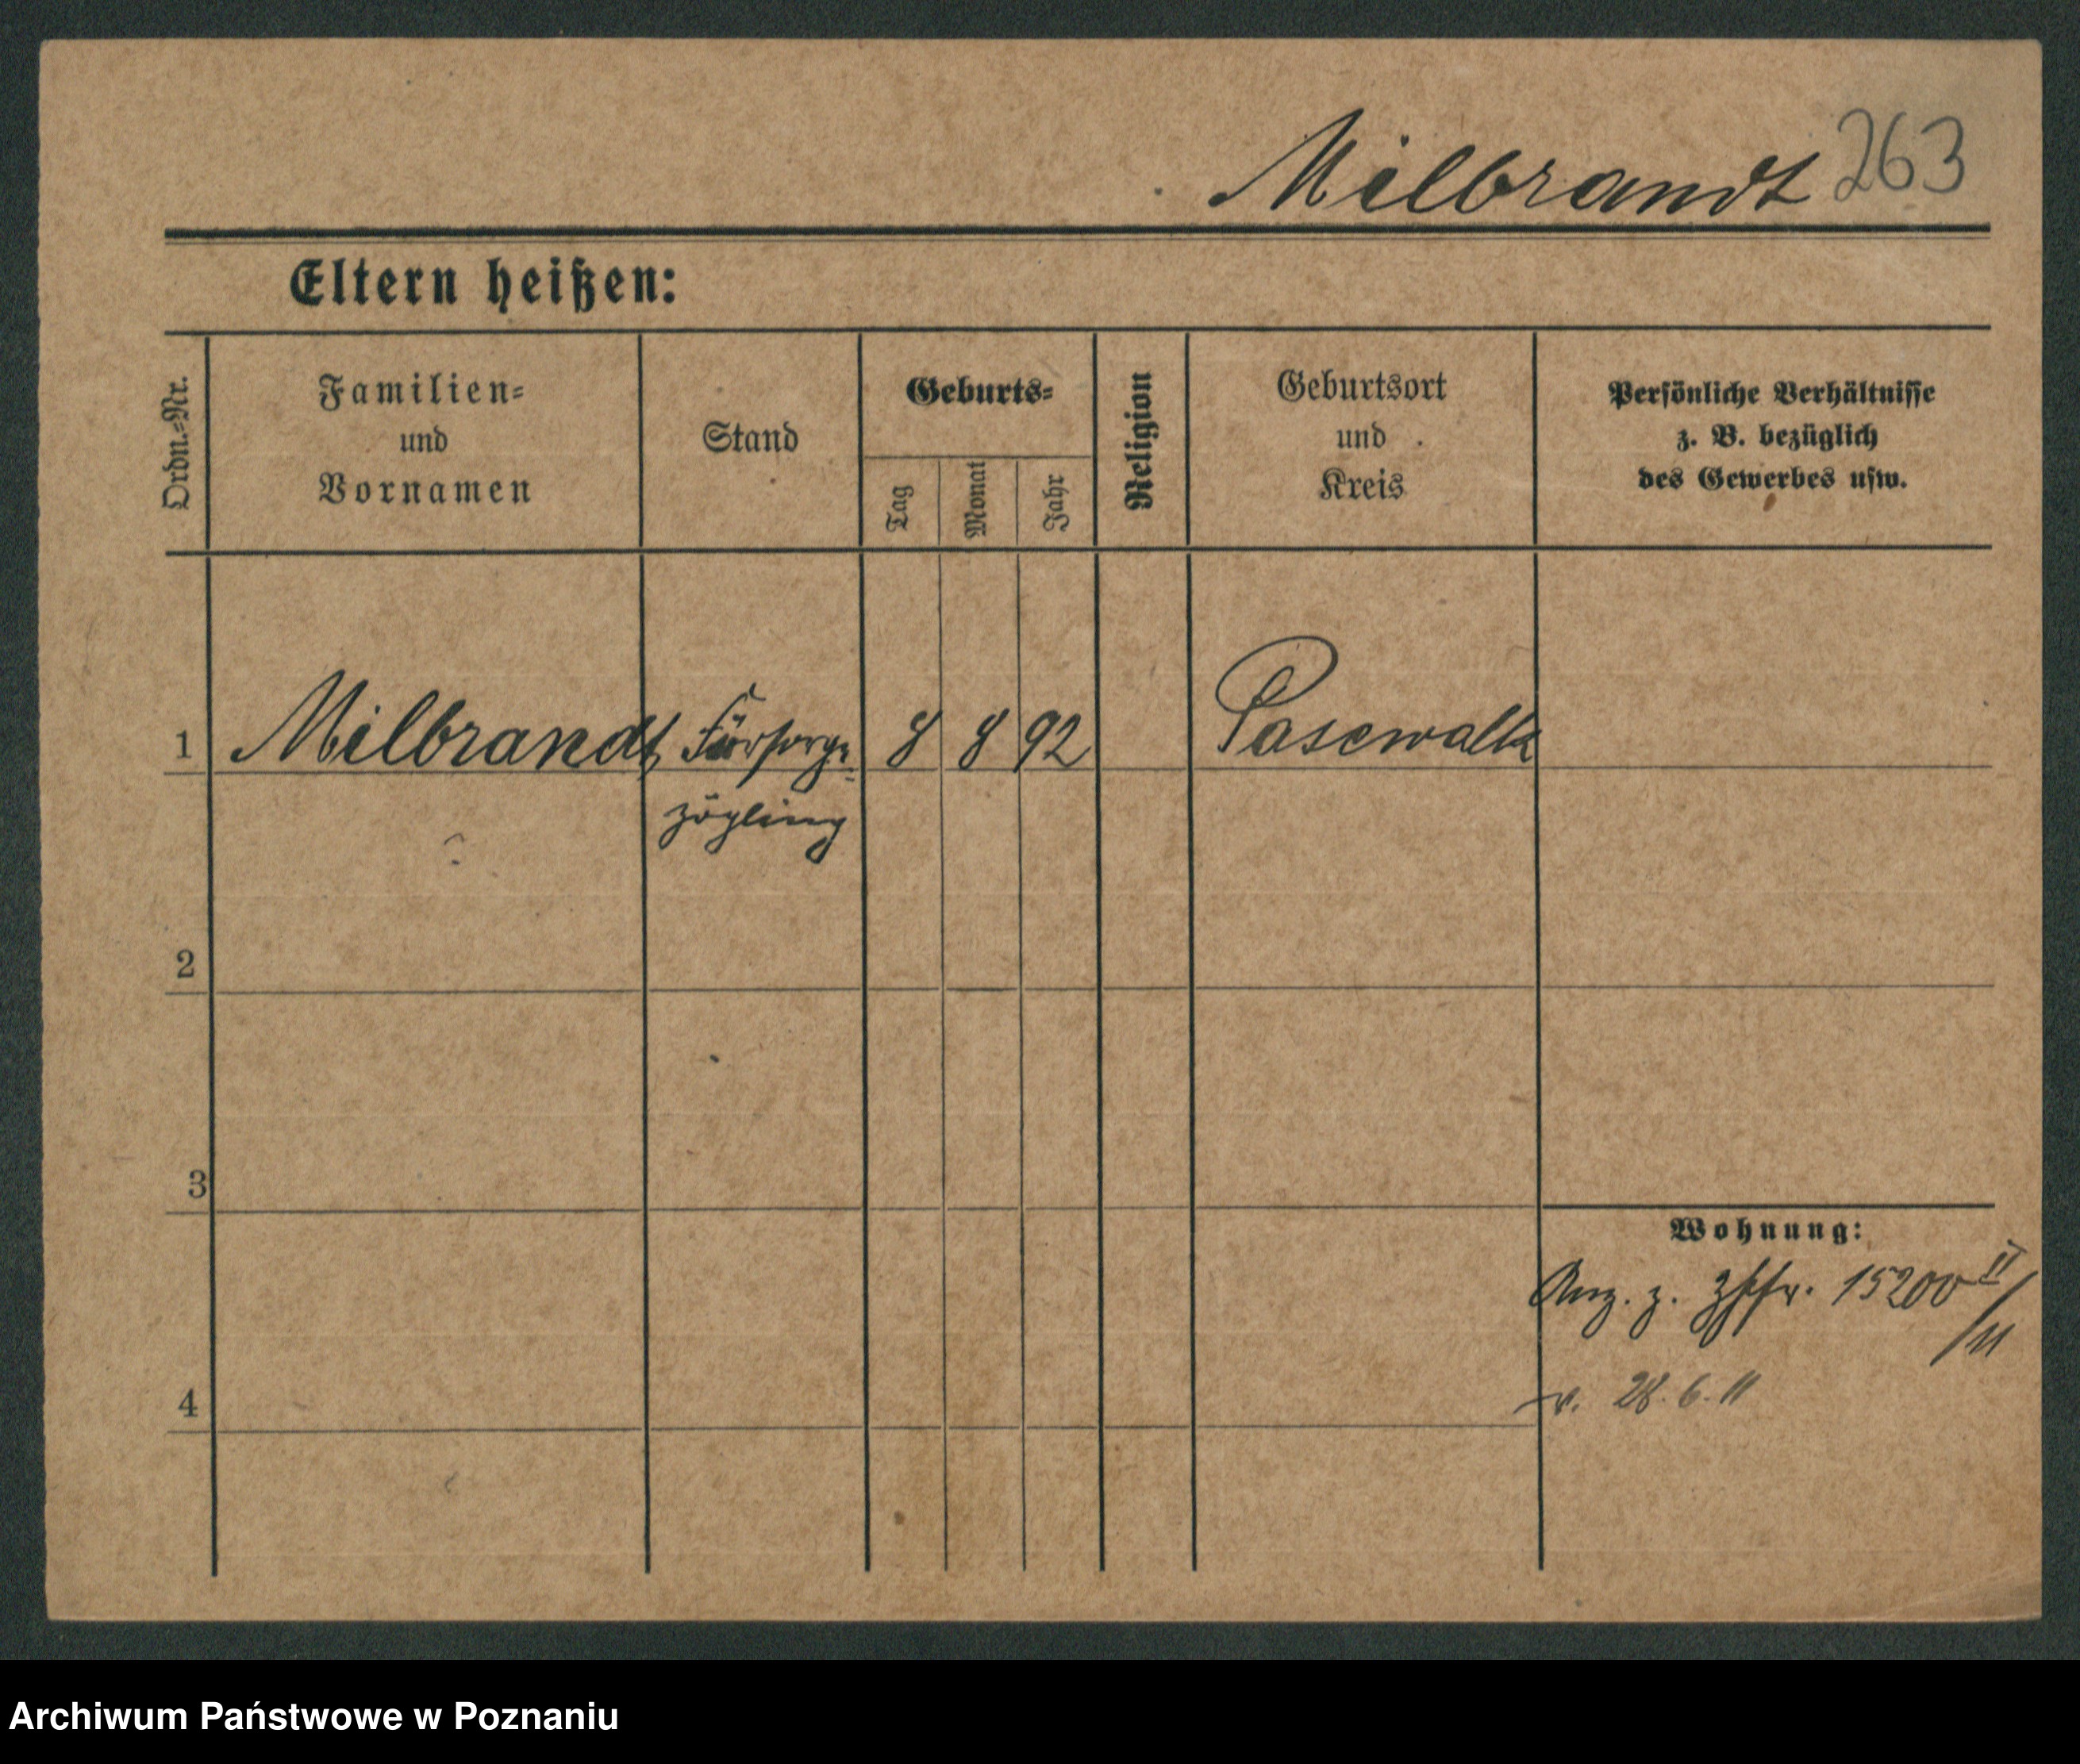 Milbrandt 263
Eltern heißen:
Ordn.-Nr.
Familien-
und
Vornamen
Stand
Geburts-
Tag
Monat
Jahr
Religion
Geburtsort
und
Kreis
Persönliche Verhältnisse
z. B. bezüglich
des Gewerbes usw.
1 Milbrandt, Fürsorge- 8 8 92 Pasewalk
zögling
2
3
Wohnung:
Anz. z. 15200 II/11
v. 28.6.11
4
Archiwum Państwowe w Poznaniu